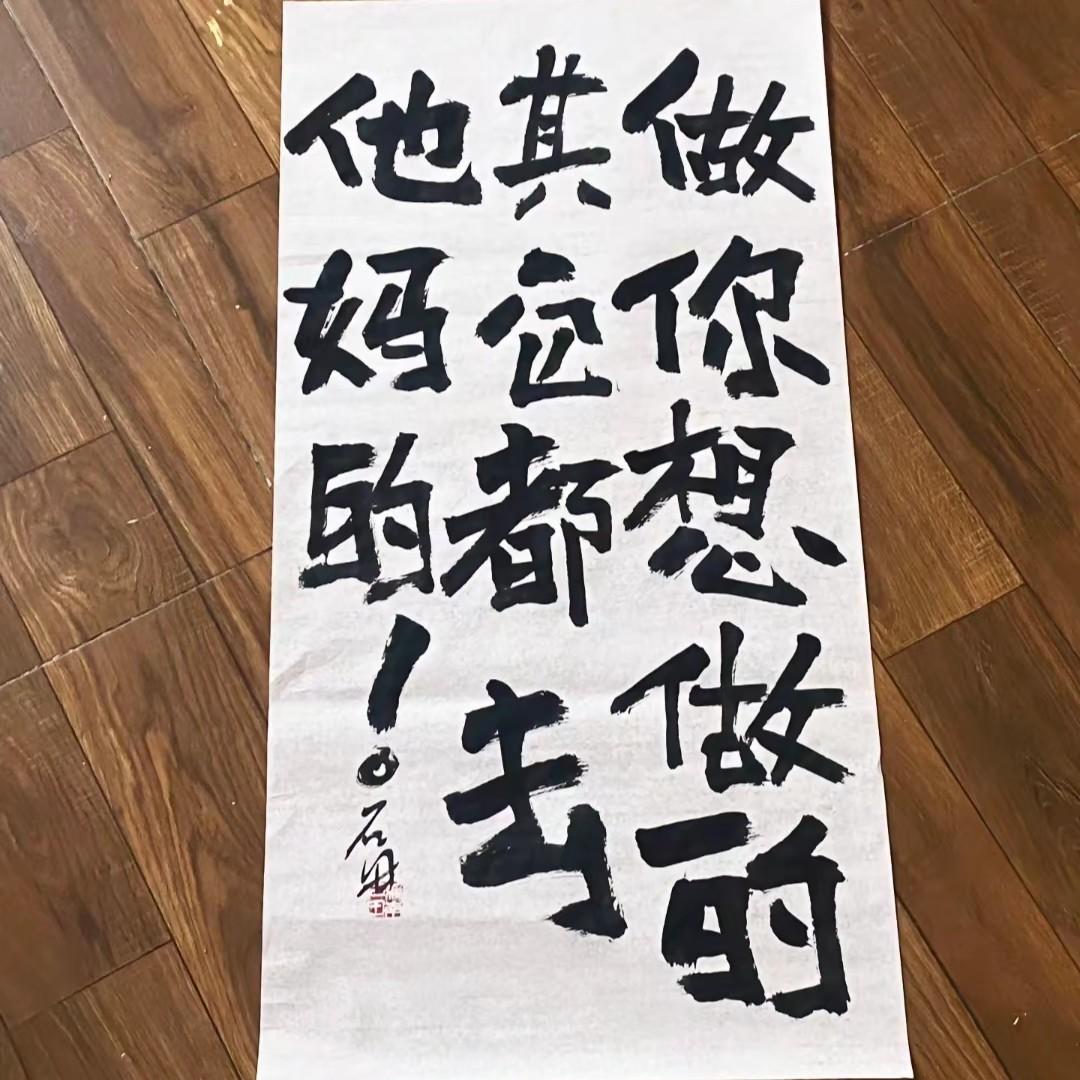 做你想做的
其它都去
他妈的!